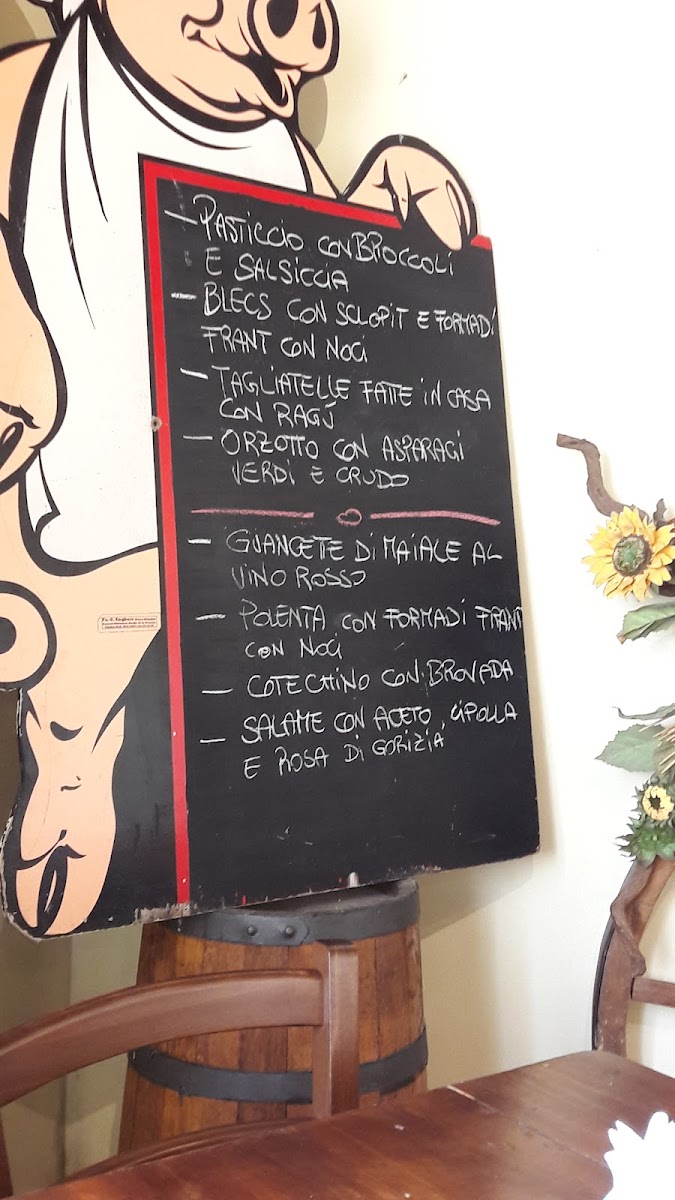 - PASTICCIO CON BROCCOLI
E SALSICCIA
- BLECS CON SCLOPIT E FORMADI
FRANT CON NOCI
- TAGLIATELLE FATTE IN CASA
CON RAGÙ
- ORZOTTO CON ASPARAGI
VERDI E CRUDO
- GUANCETTE DI MAIALE AL
VINO ROSSO
- POLENTA CON FORMADI FRANT
CON NOCI
- COTECHINO CON BROVADA
- SALAME CON ACETO, CIPOLLA
E ROSA DI GORIZIA